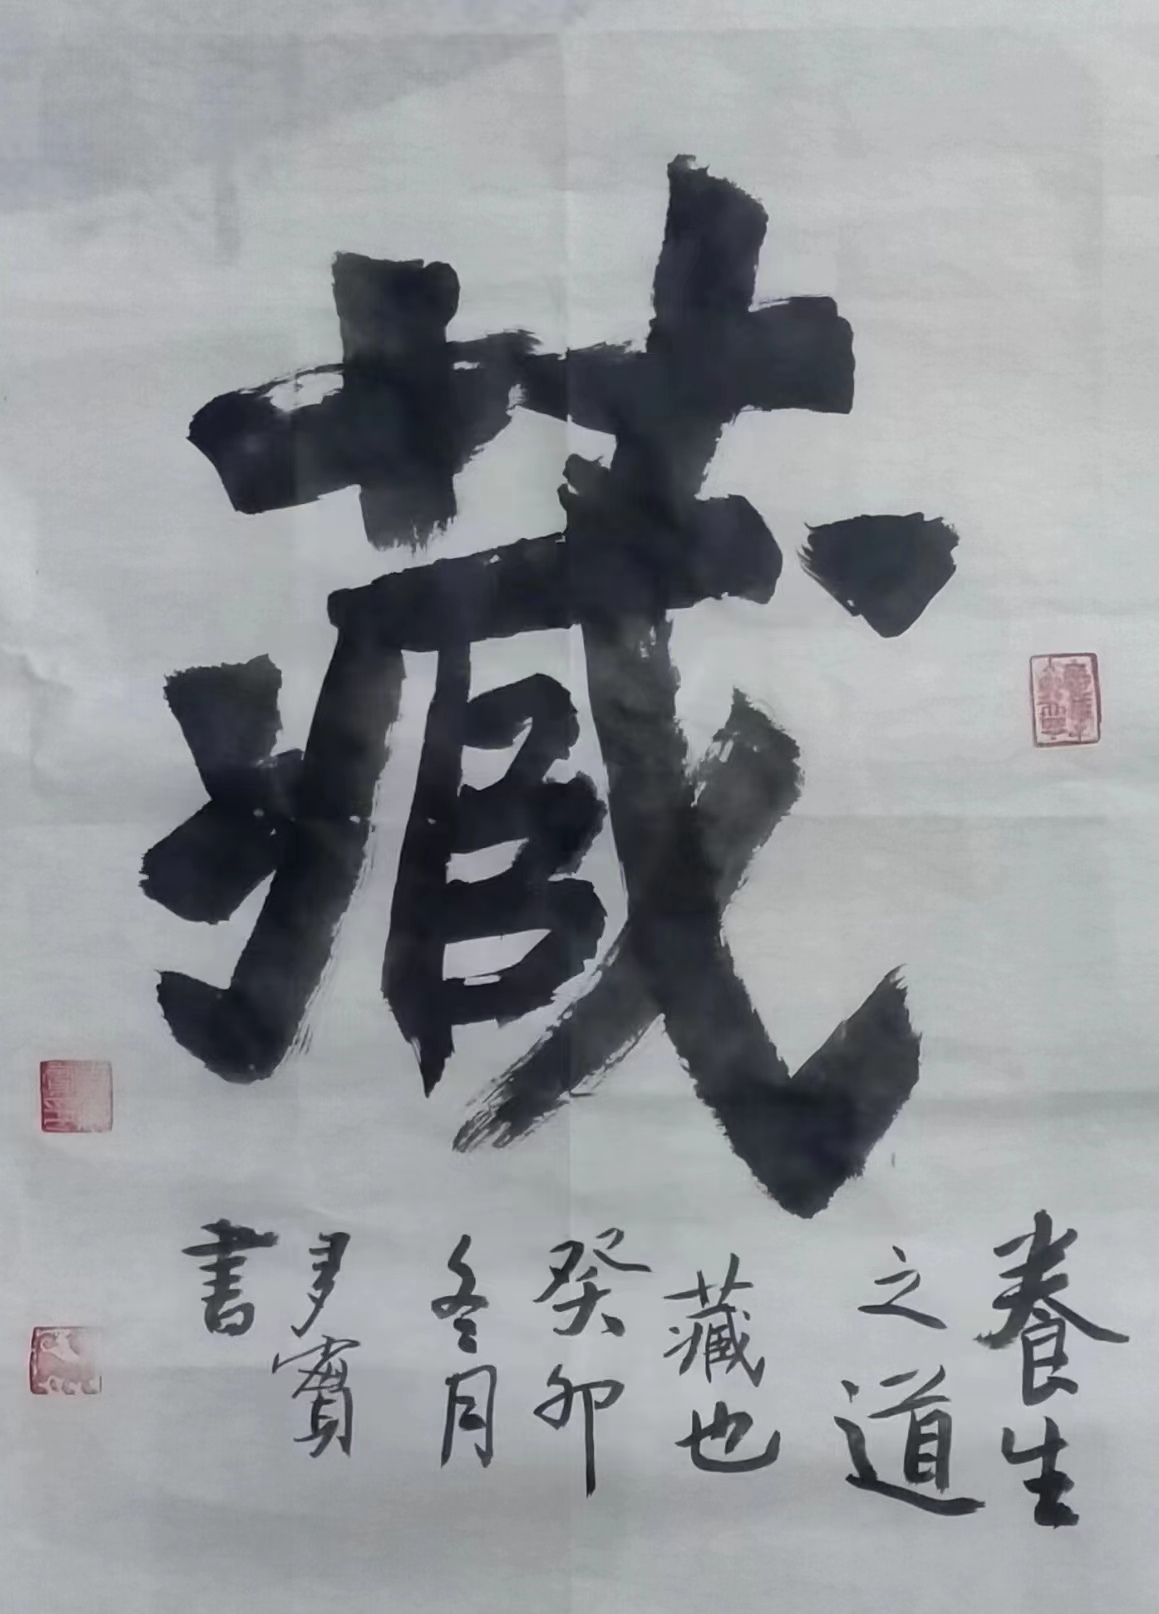 藏
養生
之道
藏也
癸卯
冬月
多賓
書